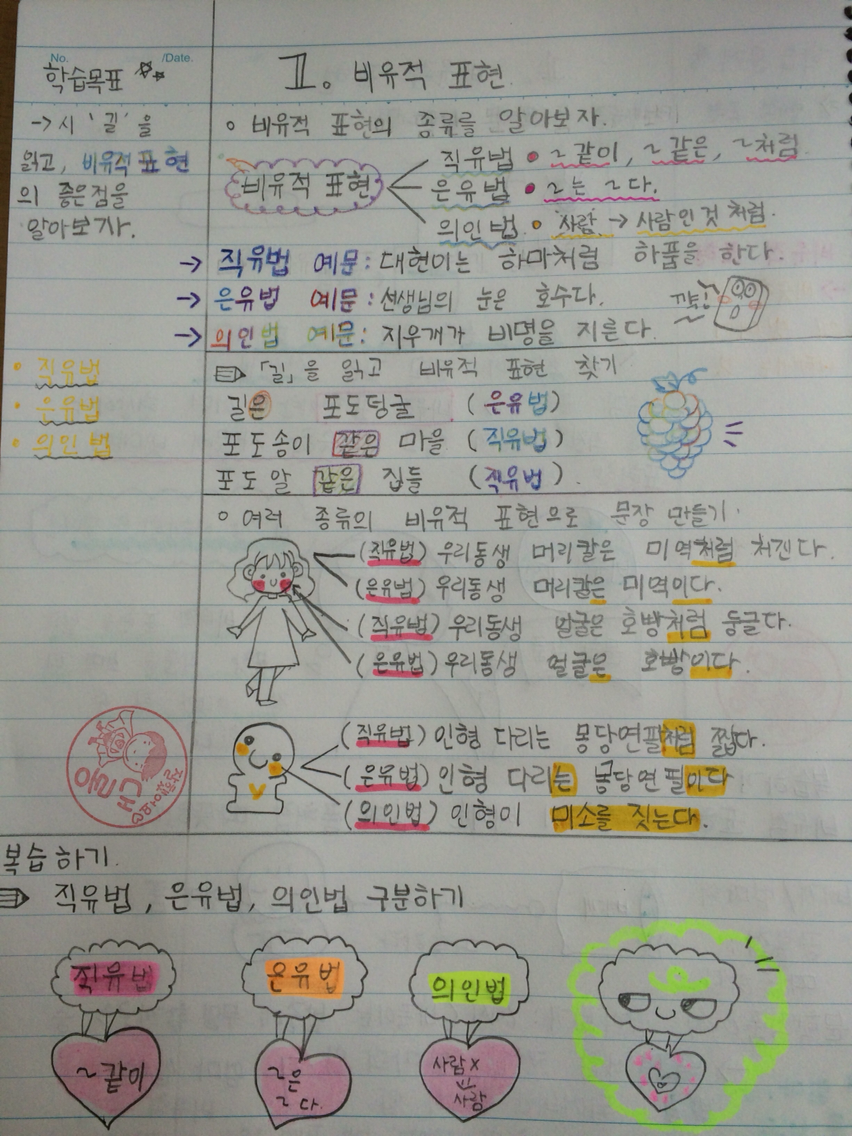 No. /Date.
학습목표
→ 시 '길'을
읽고, 비유적 표현
의 좋은점을
알아보자.
• 직유법
• 은유법
• 의인법
1. 비유적 표현
○ 비유적 표현의 종류를 알아보자.
비유적 표현
직유법 • ~같이, ~같은, ~처럼
은유법 • ~는 ~다.
의인법 • 사람 → 사람인 것 처럼.
→ 직유법 예문: 대현이는 하마처럼 하품을 한다.
→ 은유법 예문: 선생님의 눈은 호수다.
→ 의인법 예문: 지우개가 비명을 지른다.
「길」을 읽고 비유적 표현 찾기
길은 포도덩굴 (은유법)
포도송이 같은 마을 (직유법)
포도 알 같은 집들 (직유법).
○ 여러 종류의 비유적 표현으로 문장 만들기.
(직유법) 우리동생 머리칼은 미역처럼 처진다.
(은유법) 우리동생 머리칼은 미역이다.
(직유법) 우리동생 얼굴은 호빵처럼 둥글다.
(은유법) 우리동생 얼굴은 호빵이다.
(직유법) 인형 다리는 몽당연필처럼 짧다.
(은유법) 인형 다리는 몽당연필이다
(의인법) 인형이 미소를 짓는다.
참 잘했어요
복습하기.
직유법, 은유법, 의인법 구분하기
직유법
~같이
은유법
~은
~다.
의인법
사람x
사람